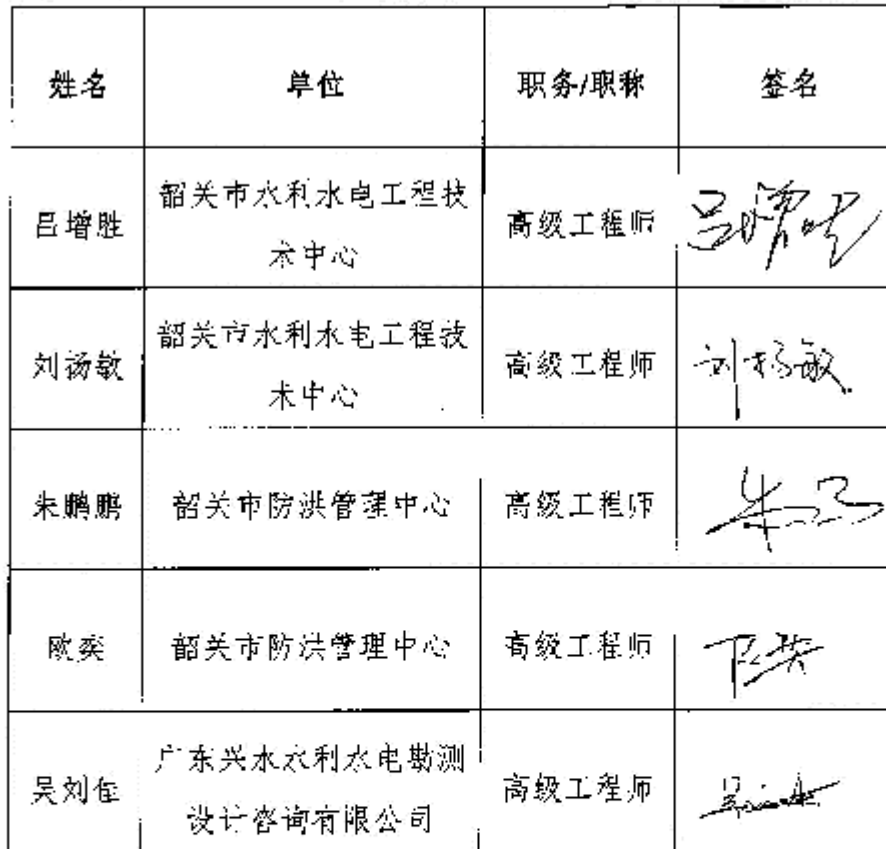 姓名 单位 职务/职称 签名
吕增胜 韶关市水利水电工程技术中心 高级工程师 吕增胜
刘扬敏 韶关市水利水电工程技术中心 高级工程师 刘扬敏
朱鹏鹏 韶关市防洪管理中心 高级工程师
欧奕 韶关市防洪管理中心 高级工程师
吴刘佳 广东兴水水利水电勘测设计咨询有限公司 高级工程师